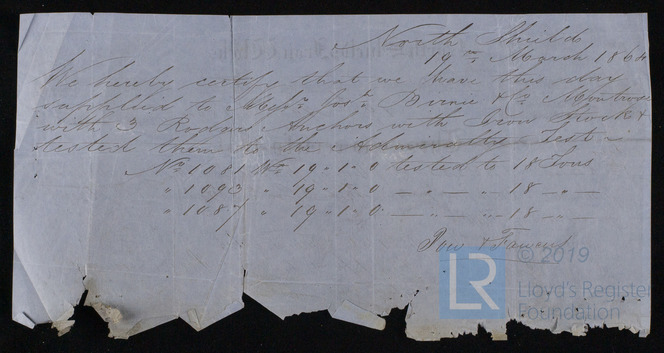 North Shields
19th March 1864
We hereby certify that we have this day
supplied to Messrs Jos. Birnie & Co Montrose
with 3 Rodgers Anchors with Iron Stocks &
tested them to the Admiralty Test
No 1081 Wt 19 " 1 " 0 tested to 18 Tons
" 1093 " 19 " 1 " 0 — " — " — 18 — " —
" 1087 " 19 " 1 " 0 — " — " — 18 — " —
Pow & Fawcus
LR
© 2019
Lloyd's Register
Foundation